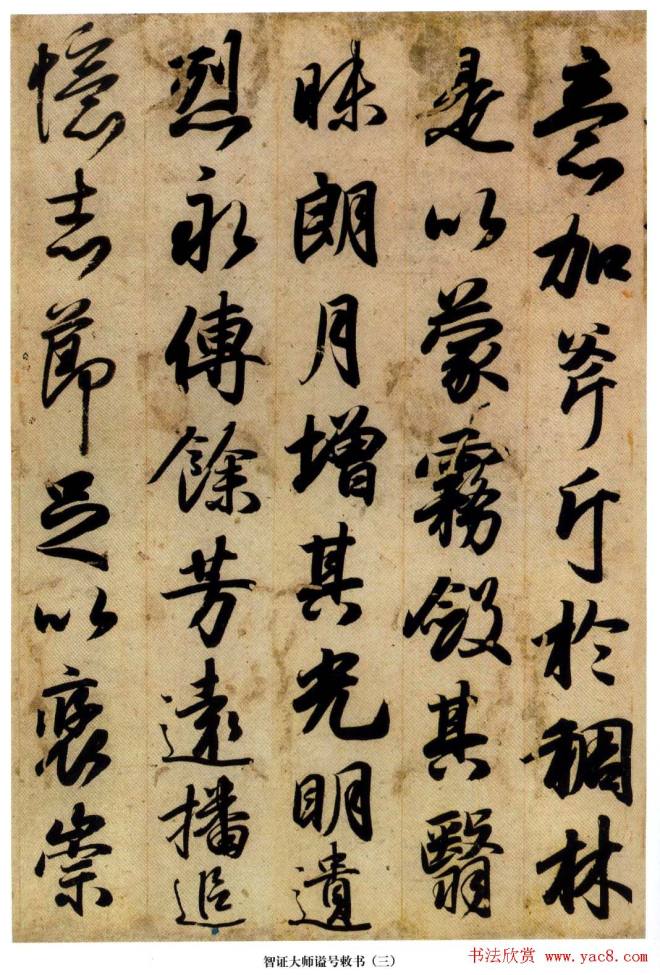 意加斧斤於稠林
是以蒙霧斂其翳
昧朗月增其光明遺
烈永傳餘芳遠播追
憶志節足以褒崇
智证大师谥号敕书（三）
书法欣赏
www.yac8.com